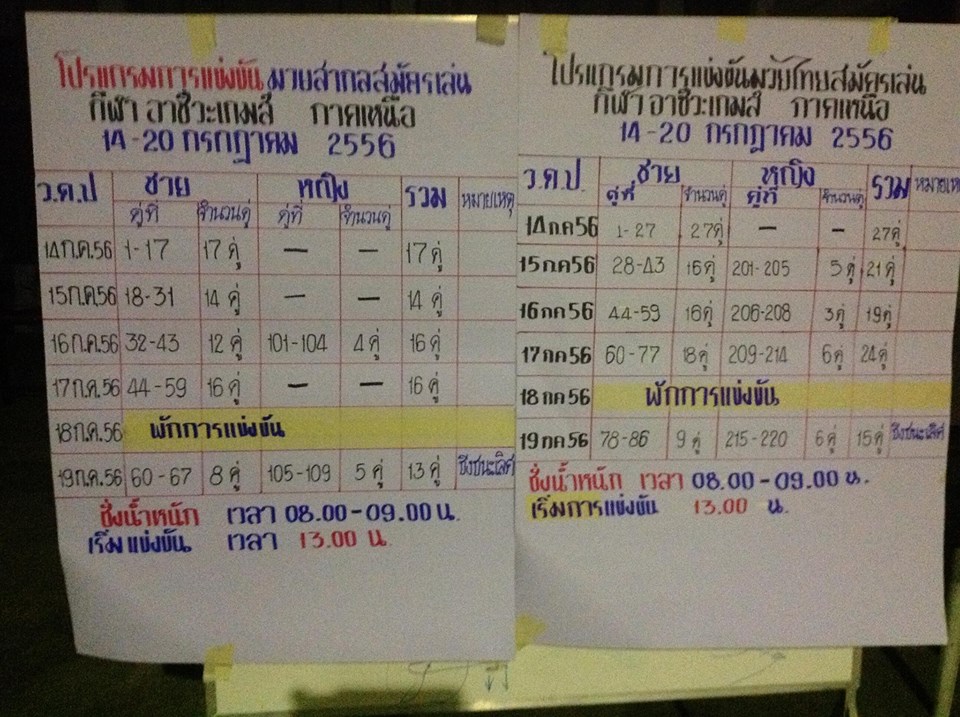 โปรแกรมการแข่งขันมวยสากลสมัครเล่น
กีฬา อาชีวะเกมส์ ภาคเหนือ
14-20 กรกฎาคม 2556
ว.ด.ป ชาย หญิง รวม หมายเหตุ
คู่ที่ จำนวนคู่ คู่ที่ จำนวนคู่
14 ก.ค.56 1-17 17 คู่ — — 17 คู่
15 ก.ค.56 18-31 14 คู่ — — 14 คู่
16 ก.ค.56 32-43 12 คู่ 101-104 4 คู่ 16 คู่
17 ก.ค.56 44-59 16 คู่ — — 16 คู่
18 ก.ค.56 พักการแข่งขัน
19 ก.ค.56 60-67 8 คู่ 105-109 5 คู่ 13 คู่ ชิงชนะเลิศ
ชั่งน้ำหนัก เวลา 08.00-09.00 น.
เริ่มแข่งขัน เวลา 13.00 น.
โปรแกรมการแข่งขันมวยไทยสมัครเล่น
กีฬา อาชีวะเกมส์ ภาคเหนือ
14-20 กรกฎาคม 2556
ว.ด.ป. ชาย หญิง รวม หมายเหตุ
คู่ที่ จำนวนคู่ คู่ที่ จำนวนคู่
14 กค 56 1-27 27 คู่ — — 27 คู่
15 กค 56 28-43 16 คู่ 201-205 5 คู่ 21 คู่
16 กค 56 44-59 16 คู่ 206-208 3 คู่ 19 คู่
17 กค 56 60-77 18 คู่ 209-214 6 คู่ 24 คู่
18 กค 56 พักการแข่งขัน
19 กค 56 78-86 9 คู่ 215-220 6 คู่ 15 คู่ ชิงชนะเลิศ
ชั่งน้ำหนัก เวลา 08.00-09.00 น.
เริ่มการแข่งขัน 13.00 น.